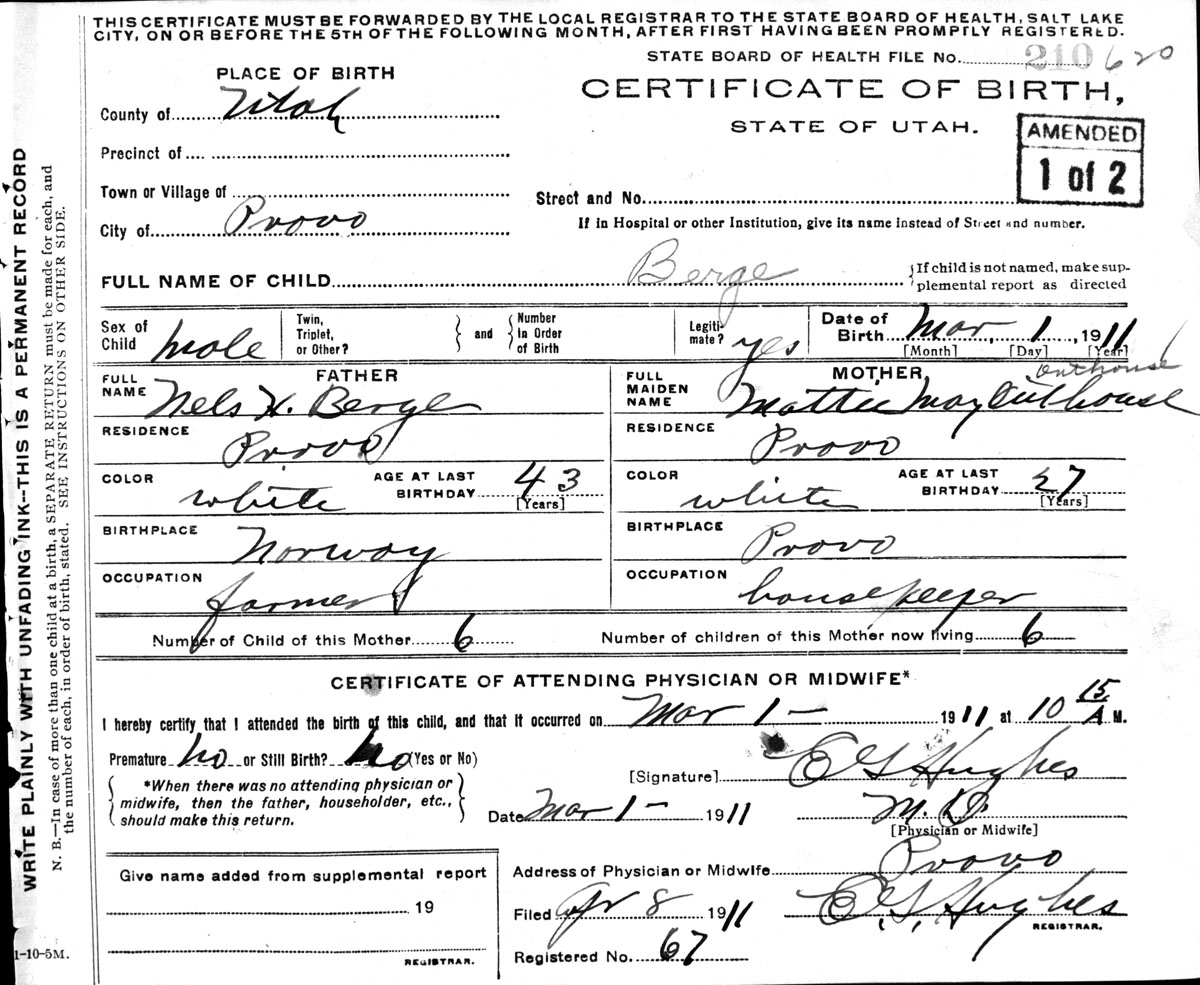 THIS CERTIFICATE MUST BE FORWARDED BY THE LOCAL REGISTRAR TO THE STATE BOARD OF HEALTH, SALT LAKE
CITY, ON OR BEFORE THE 5TH OF THE FOLLOWING MONTH, AFTER FIRST HAVING BEEN PROMPTLY REGISTERED.
STATE BOARD OF HEALTH FILE No. 210 620
PLACE OF BIRTH
CERTIFICATE OF BIRTH,
STATE OF UTAH.
AMENDED
1 of 2
County of Utah
Precinct of
Town or Village of
Street and No.
City of Provo
If in Hospital or other Institution, give its name instead of Street and number.
FULL NAME OF CHILD Berge
If child is not named, make sup-
plemental report as directed
Sex of Child male
Twin, Triplet, or Other?
and
Number in Order of Birth
Legiti- mate? yes
Date of Birth Mar 1, 1911
[Month] [Day] [Year]
FATHER
FULL NAME Nels H. Berge
RESIDENCE Provo
COLOR white
AGE AT LAST BIRTHDAY 43
[Years]
BIRTHPLACE Norway
OCCUPATION farmer
MOTHER
Outhouse
FULL MAIDEN NAME Mattie May Outhouse
RESIDENCE Provo
COLOR white
AGE AT LAST BIRTHDAY 27
[Years]
BIRTHPLACE Provo
OCCUPATION housekeeper
Number of Child of this Mother 6
Number of children of this Mother now living 6
CERTIFICATE OF ATTENDING PHYSICIAN OR MIDWIFE*
I hereby certify that I attended the birth of this child, and that it occurred on Mar 1 - 1911 at 10 15 A M.
Premature no or Still Birth? no (Yes or No)
*When there was no attending physician or
midwife, then the father, householder, etc.,
should make this return.
[Signature] E G Hughes
Date Mar 1 - 1911
M. D.
[Physician or Midwife]
Address of Physician or Midwife Provo
Filed Apr 8 1911
E. G. Hughes
REGISTRAR.
Registered No. 67
Give name added from supplemental report
19
REGISTRAR.
WRITE PLAINLY WITH UNFADING INK--THIS IS A PERMANENT RECORD
N. B.—In case of more than one child at a birth, a SEPARATE RETURN must be made for each, and
the number of each, in order of birth, stated. SEE INSTRUCTIONS ON OTHER SIDE.
1-10-5M.